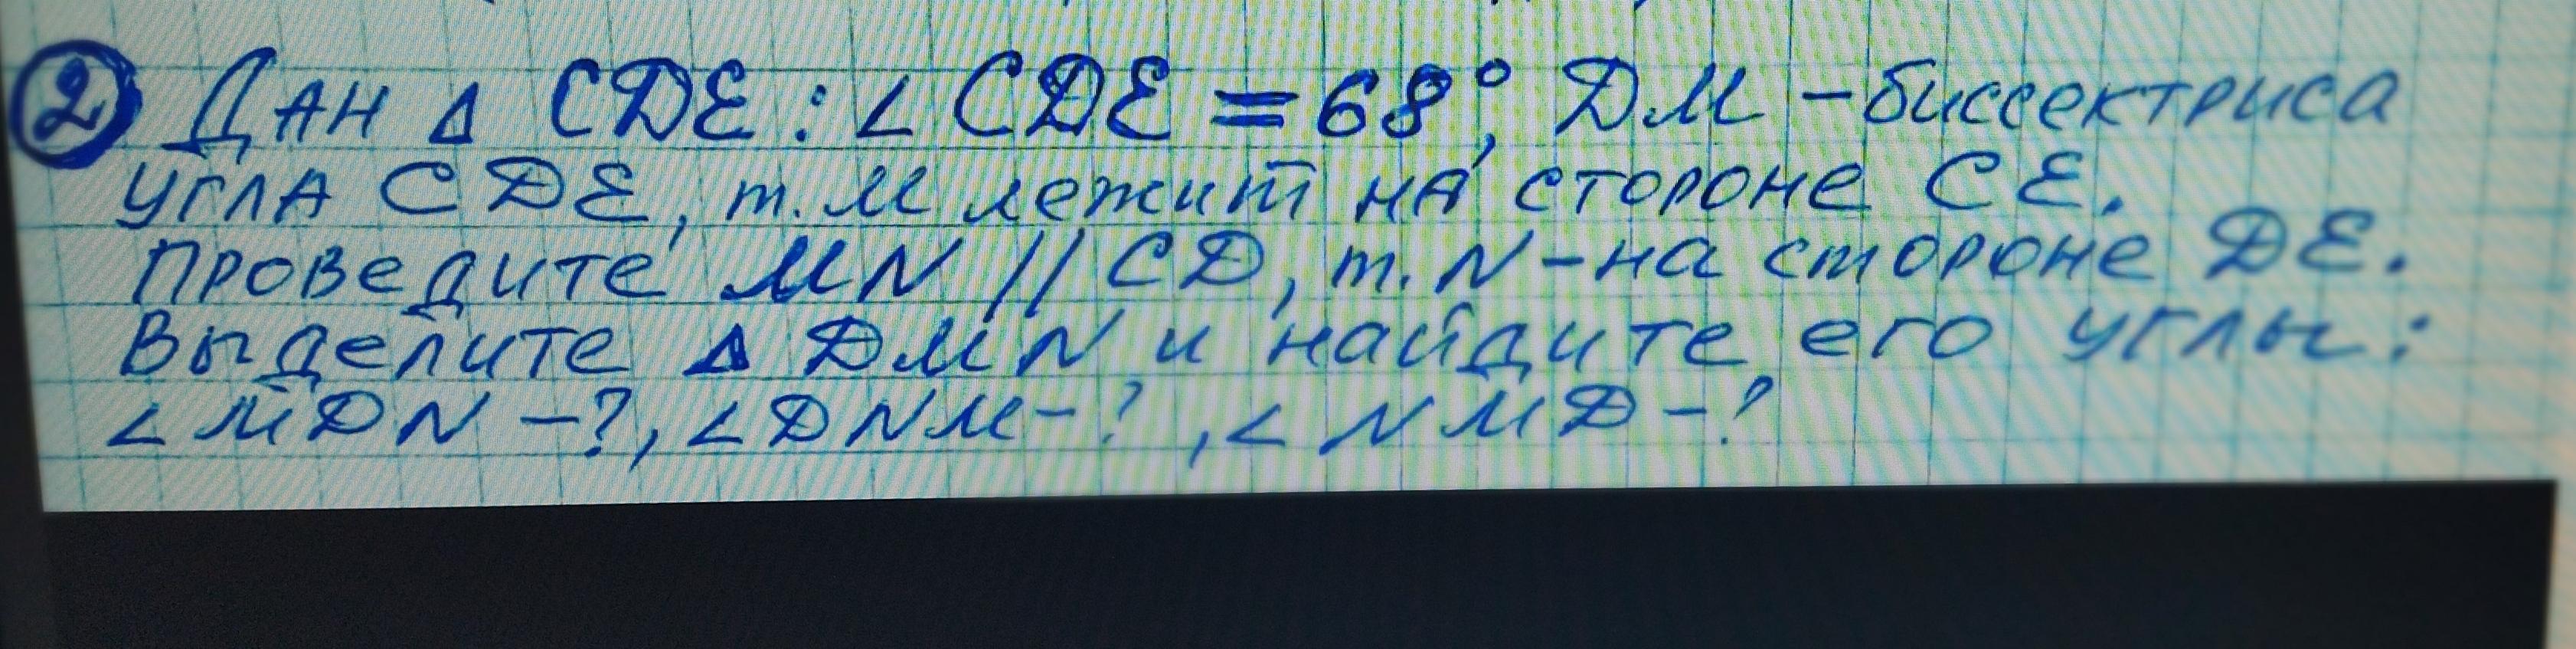 2 Дан Δ CDE: ∠ CDE = 68°, DM - биссектриса
угла CDE, т. M лежит на стороне CE.
Проведите MN // CD, т. N - на стороне DE.
Выделите Δ DMN и найдите его углы:
∠ MDN - ?, ∠ DNM - ?, ∠ NMD - ?